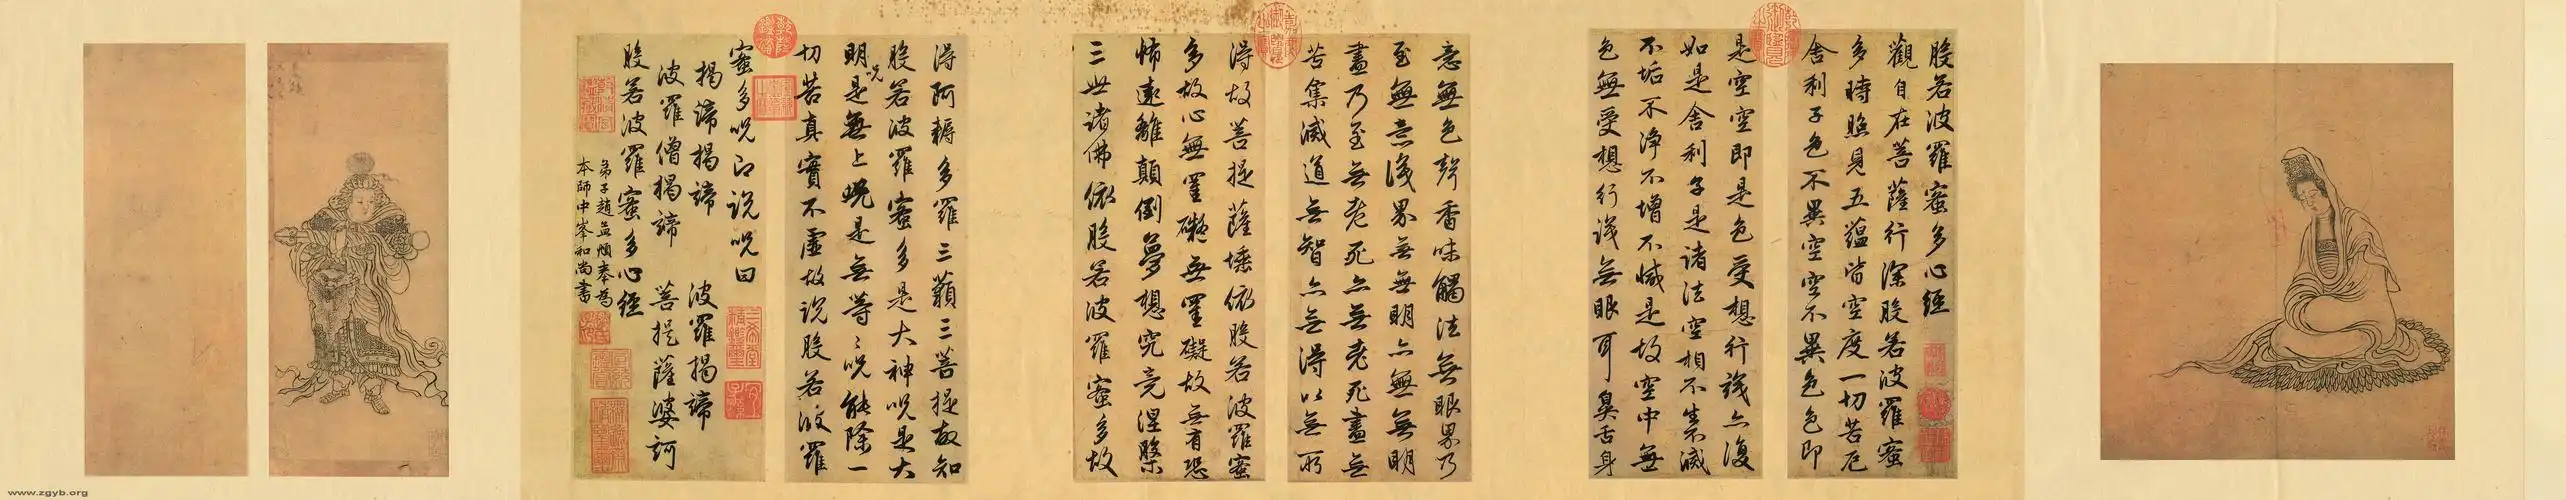 般若波羅蜜多心經
觀自在菩薩行深般若波羅蜜
多時照見五蘊皆空度一切苦厄
舍利子色不異空空不異色色即
是空空即是色受想行識亦復
如是舍利子是諸法空相不生不滅
不垢不淨不增不減是故空中無
色無受想行識無眼耳鼻舌身
意無色聲香味觸法無眼界乃
至無意識界無無明亦無無明
盡乃至無老死亦無老死盡無
苦集滅道無智亦無得以無所
得故菩提薩埵依般若波羅蜜
多故心無罣礙無罣礙故無有恐
怖遠離顛倒夢想究竟涅槃
三世諸佛依般若波羅蜜多故
得阿耨多羅三藐三菩提故知
般若波羅蜜多是大神呪是大
明呪是無上呪是無等〻呪能除一
切苦真實不虛故說般若波羅
蜜多呪即說呪曰
揭諦揭諦 波羅揭諦
波羅僧揭諦 菩提薩婆訶
般若波羅蜜多心經
弟子趙孟頫奉為
本師中峯和尚書
www.zgyb.org